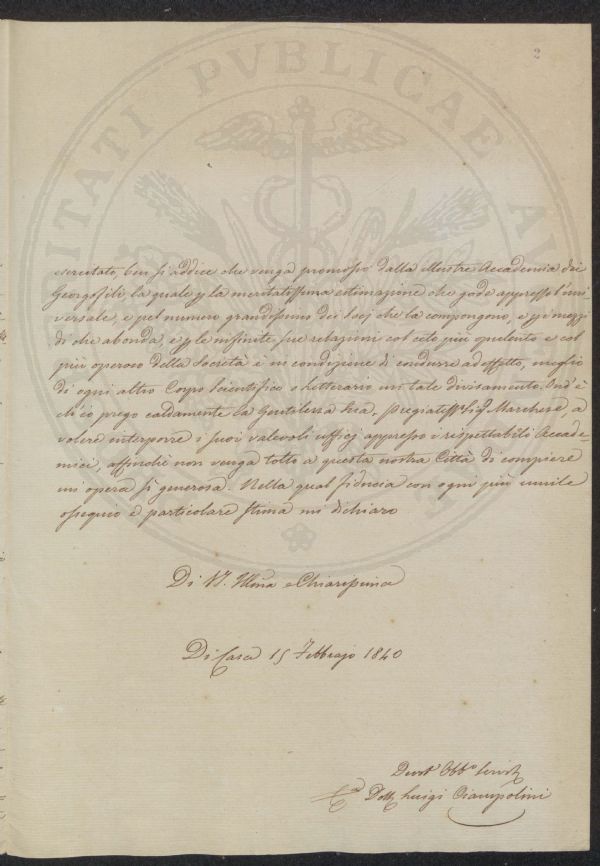 2
esercitato, ben si addice che venga promosso dalla illustre Accademia dei
Georgofili, la quale p la meritatissima estimazione che gode appresso l'uni=
versale, e pel numero grandissimo dei Socj che la compongono, e p i mezzi
di che abonda, e p le infinite sue relazioni col ceto più opulento e col
più operoso della Società è in condizione di condurre ad effetto, meglio
di ogni altro Corpo Scientifico o Letterario un tale divisamento. Ond'è
ch'io prego caldamente la Gentilezza Sua, Pregiatiss. Sig. Marchese, a
volere interporre i suoi valevoli ufficj appresso i rispettabili Accade=
mici, affinchè non venga tolto a questa nostra Città di compiere
un opera sì generosa. Nella qual fiducia con ogni più umile
ossequio e particolare stima mi dichiaro
Di V. S. Illma e Chiarissima
Di Casa 15 Febbrajo 1840
Devot. Obb.o Servit.
Dott. Luigi Ciampolini
ITATI PVBLICAE AV